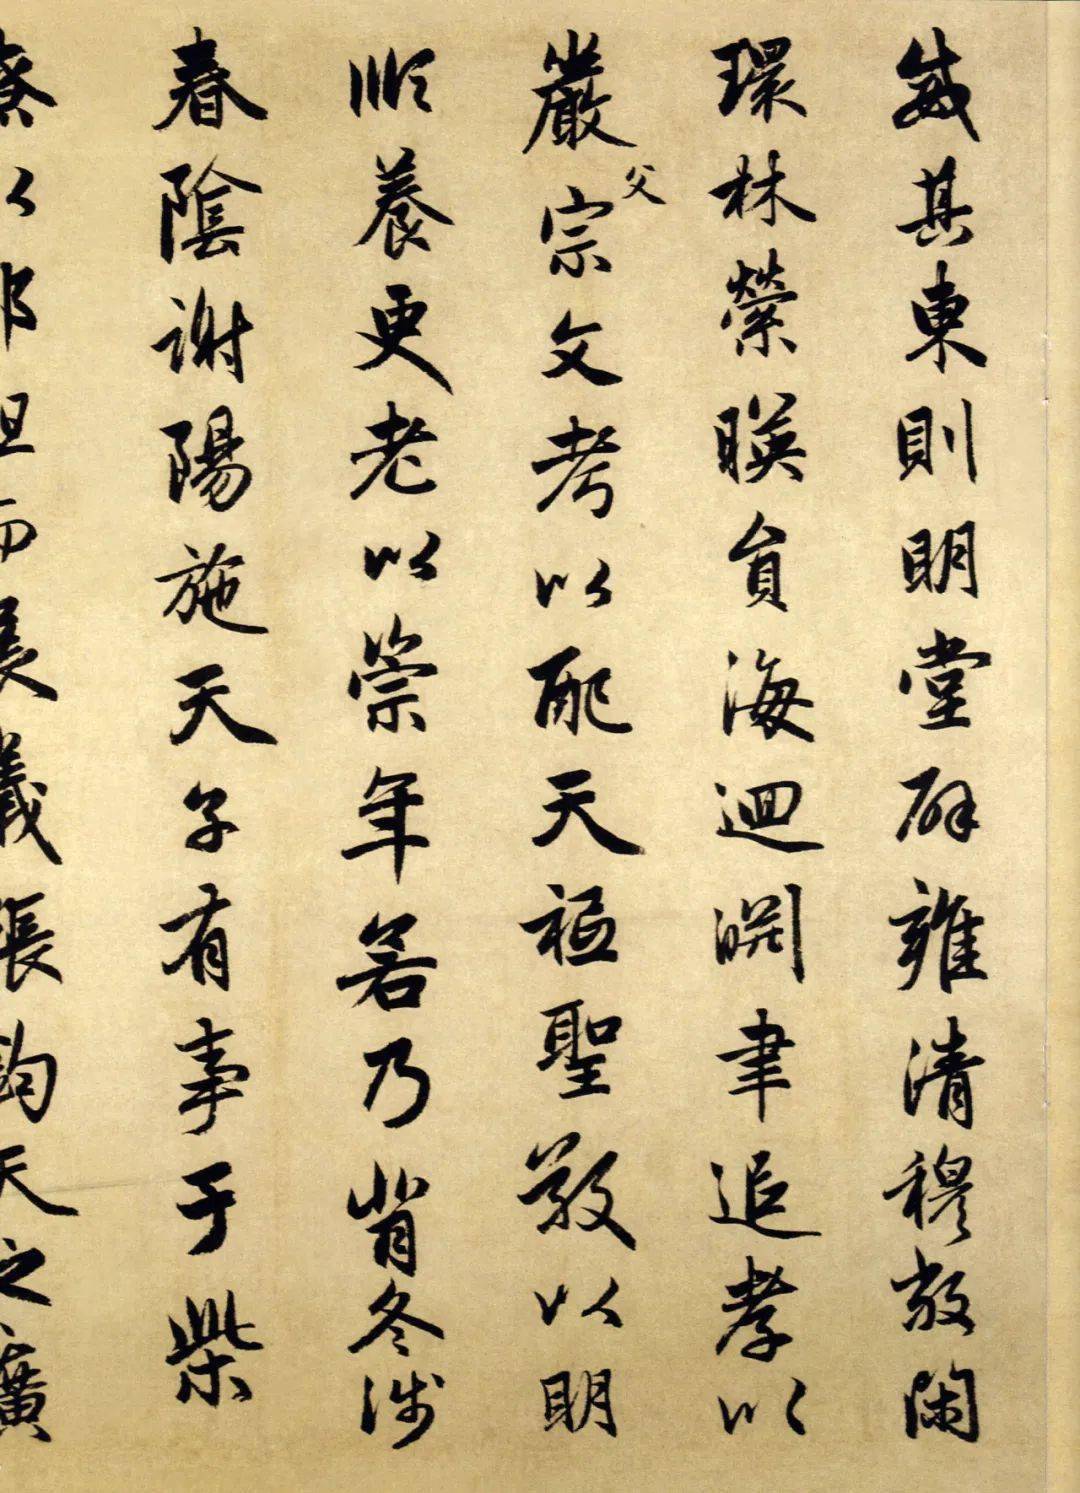 威其東則明堂辟雍清穆敞閑
環林縈暎員海迴淵聿追孝以
嚴父宗文考以配天祗聖敬以明
順養更老以崇年若乃背冬涉
春陰謝陽施天子有事于柴
燎以郊祖而展義張鈞天之廣